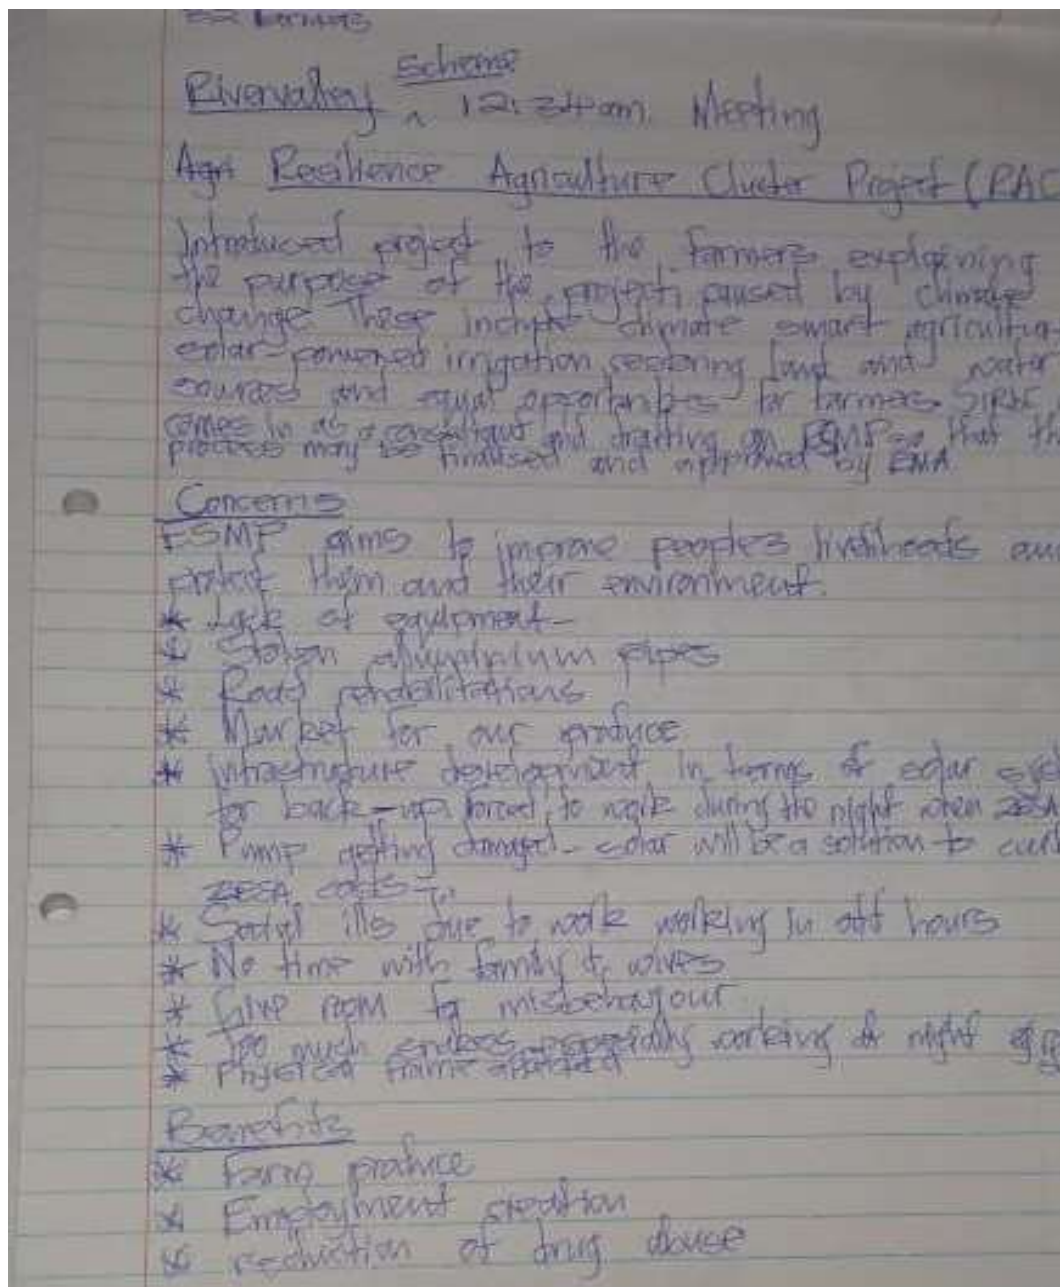 Farmers
Scheme
Rivervalley ^ 12:34am Meeting
Agri Resilience Agriculture Cluster Project (RAC
Introduced project to the farmers explaining
the purpose of the project; caused by climate
change These include climate smart agricultur
solar-powered irrigation, restoring land and water
sources and equal opportunities for farmers.
comes in as a consultant and drafting an ESMP so that the
process may be finalised and approved by EMA
Concerns
ESMP aims to improve peoples livelihoods and
protect them and their environment.
* Lack of equipment-
* Stolen alluminium pipes
* Road rehabilitations
* Market for our produce
* Infrastructure development in terms of solar sys
for back-up forced to work during the night when ZESA
* Pump getting damaged - solar will be a solution to
ZESA costs
* Social ills due to work working in odd hours
* No time with family & wives
* Give room to misbehaviour
* Too much snakes especially working at night eg
* Physical frame affected
Benefits
* Farm produce
* Employment creation
* reduction of drug abuse